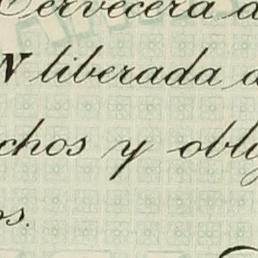 Cervecera d
N liberada d
chos y oblig
os.